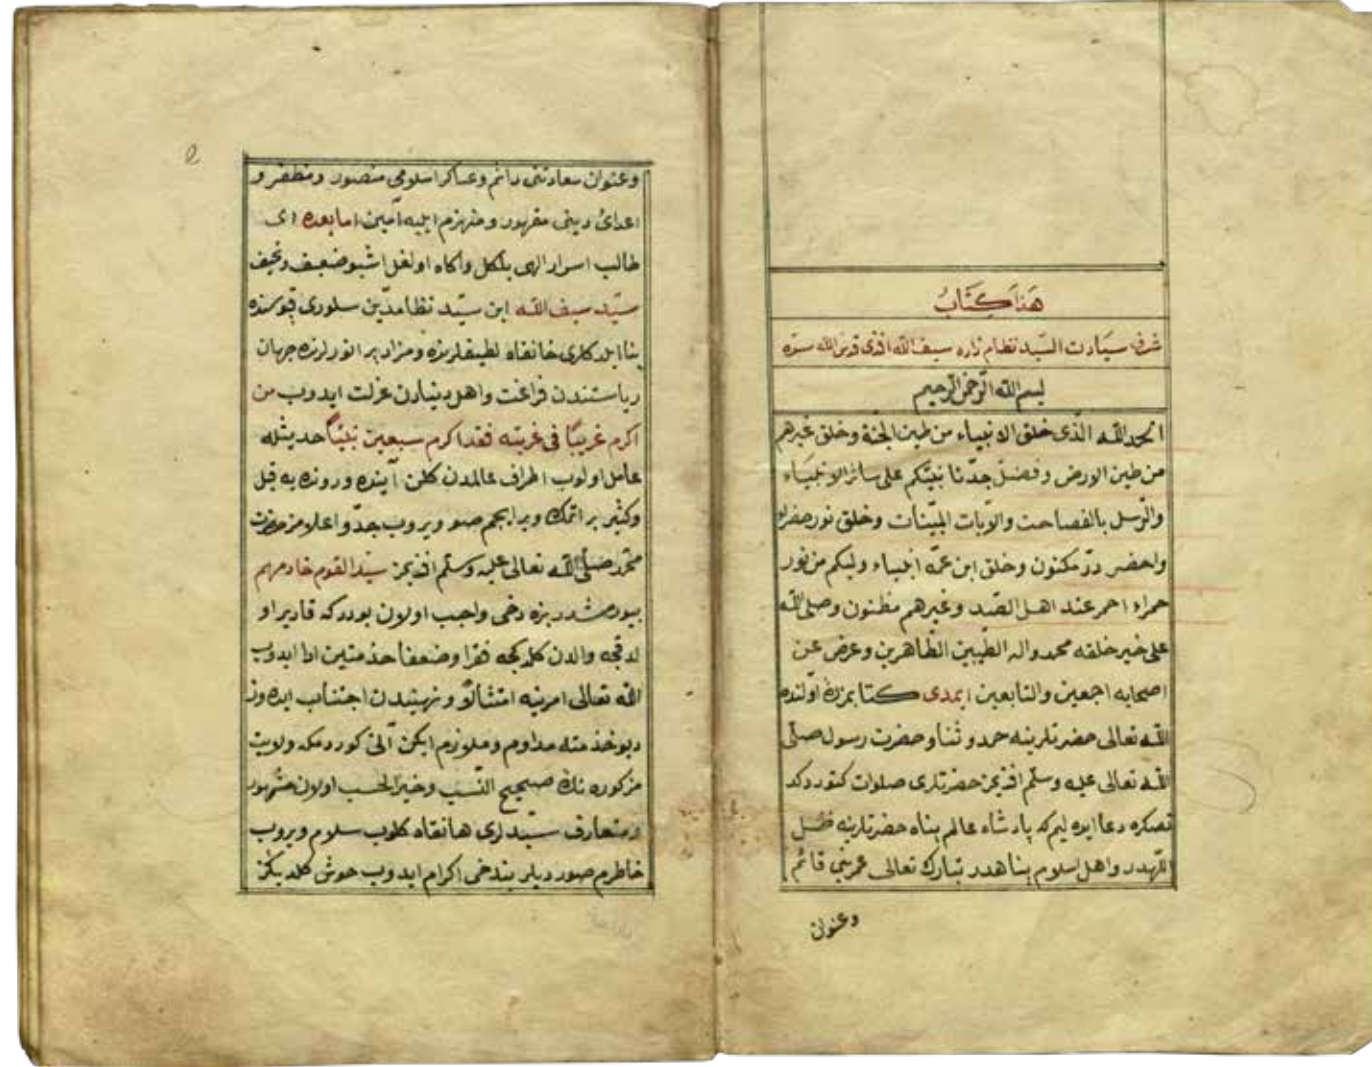 هذا كتاب
شرف سيادت السيد نظام زاده سيف الله افندى قدس الله سره
بسم الله الرحمن الرحيم
الحمد لله الذى خلق الانبياء من طين الجنة وخلق غيرهم
من طين الارض وفضل جدنا نبيكم على سائر الانبياء
والرسل بالفصاحت والايات البينات وخلق نور
واحضر در مكنون وخلق ابن عمه وليكم من نور
حمراء احمر عند اهل وغيرهم مظنون وصلى الله
على خير خلقه محمد واله الطيبين الطاهرين وعرض عن
اصحابه اجمعين والتابعين ايمدى كتابمزڭ اولنده
الله تعالى حضرتلرينه حمد و ثنا و حضرت رسول صلى
الله تعالى عليه وسلم افنديمز حضرتلرى صلوات كتوردكد
نصكره دعا ايده ليم كه پادشاه عالم پناه حضرتلرينه ظل
اللهدر واهل اسلوم پناهدر تبارك تعالى عمرينى قائم
وعنوان
وعنوان سعادتنى دائم وعساكر اسلومى منصور ومظفر و
اعداى دينى مقهور ومنهزم ايليه آمين اما بعده اى
طالب اسرار الهى بلكل واكاه اولغل اشبو ضعيف ونحيف
سيد سيف الله ابن سيد نظامدين سلورى قپوسنده
بنا ايلدكلرى خانقاه لطيفلرنده ومزار پر انورلرنده جهان
رياستندن فراغت واهل دنيادن عزلت ايدوب من
اكرم غريبًا فى غربته فقد اكرم سبعين نبيًا حديثله
عامل اولوب اطراف عالمدن كلن آينده و رونده يه قل
وكثير بر اتمك وبر ايچم صو ويروب جد واعلامز حضرت
محمد صلى الله تعالى عليه وسلم افنديمز سيد القوم خادمهم
بيورمشدر بزه دخى واجب اولان بودركه قادر او
لدقجه والدن كلديكجه فقرا وضعفا خذمتين ادا ايدوب
الله تعالى امرينه امتثالا و نهيندن اجتناب ايده وز
ديو خذمته مداوم وملوزم ايكن
مزكوره نڭ صحيح النسب وخير الحسب اولان مشهور
ومتعارف سيدلرى هانقاه كلوب سلوم ويروب
خاطرم صورديلر بندخى اكرام ايدوب خوش كلديڭز